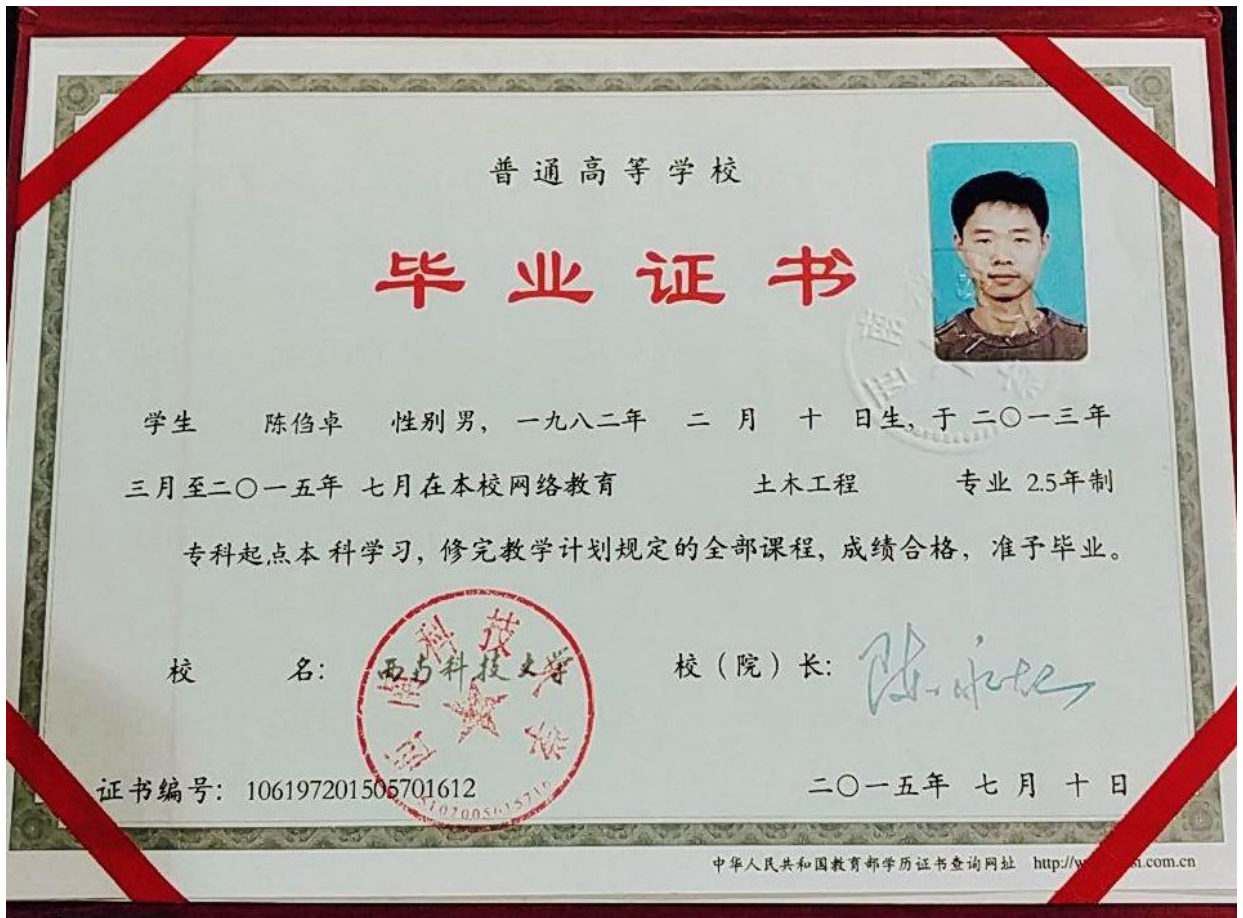 普通高等学校
毕业证书
学生 陈俏卓 性别 男, 一九八二年 二 月 十 日生, 于 二〇一三年
三月至二〇一五年 七月在本校网络教育 土木工程 专业 2.5年制
专科起点本 科学习, 修完教学计划规定的全部课程, 成绩合格, 准予毕业。
校 名: 西南科技大学 校(院)长:
证书编号: 106197201505701612 二〇一五年 七 月 十 日
中华人民共和国教育部学历证书查询网址 http://w .com.cn
西南科技大学